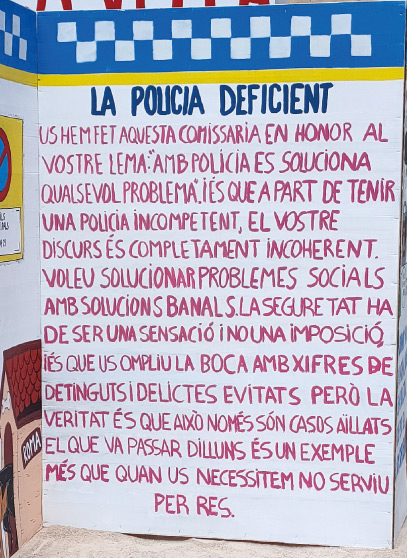 LA POLICIA DEFICIENT
US HEM FET AQUESTA COMISSARIA EN HONOR AL
VOSTRE LEMA: "AMB POLICIA ES SOLUCIONA
QUALSEVOL PROBLEMA". I ÉS QUE A PART DE TENIR
UNA POLICIA INCOMPETENT, EL VOSTRE
DISCURS ÉS COMPLETAMENT INCOHERENT.
VOLEU SOLUCIONAR PROBLEMES SOCIALS
AMB SOLUCIONS BANALS. LA SEGURETAT HA
DE SER UNA SENSACIÓ I NO UNA IMPOSICIÓ,
I ÉS QUE US OMPLIU LA BOCA AMB XIFRES DE
DETINGUTS I DELICTES EVITATS PERÒ LA
VERITAT ÉS QUE AIXÒ NOMÉS SÓN CASOS AÏLLATS
EL QUE VA PASSAR DILLUNS ÉS UN EXEMPLE
MÉS QUE QUAN US NECESSITEM NO SERVIU
PER RES.
ROMA